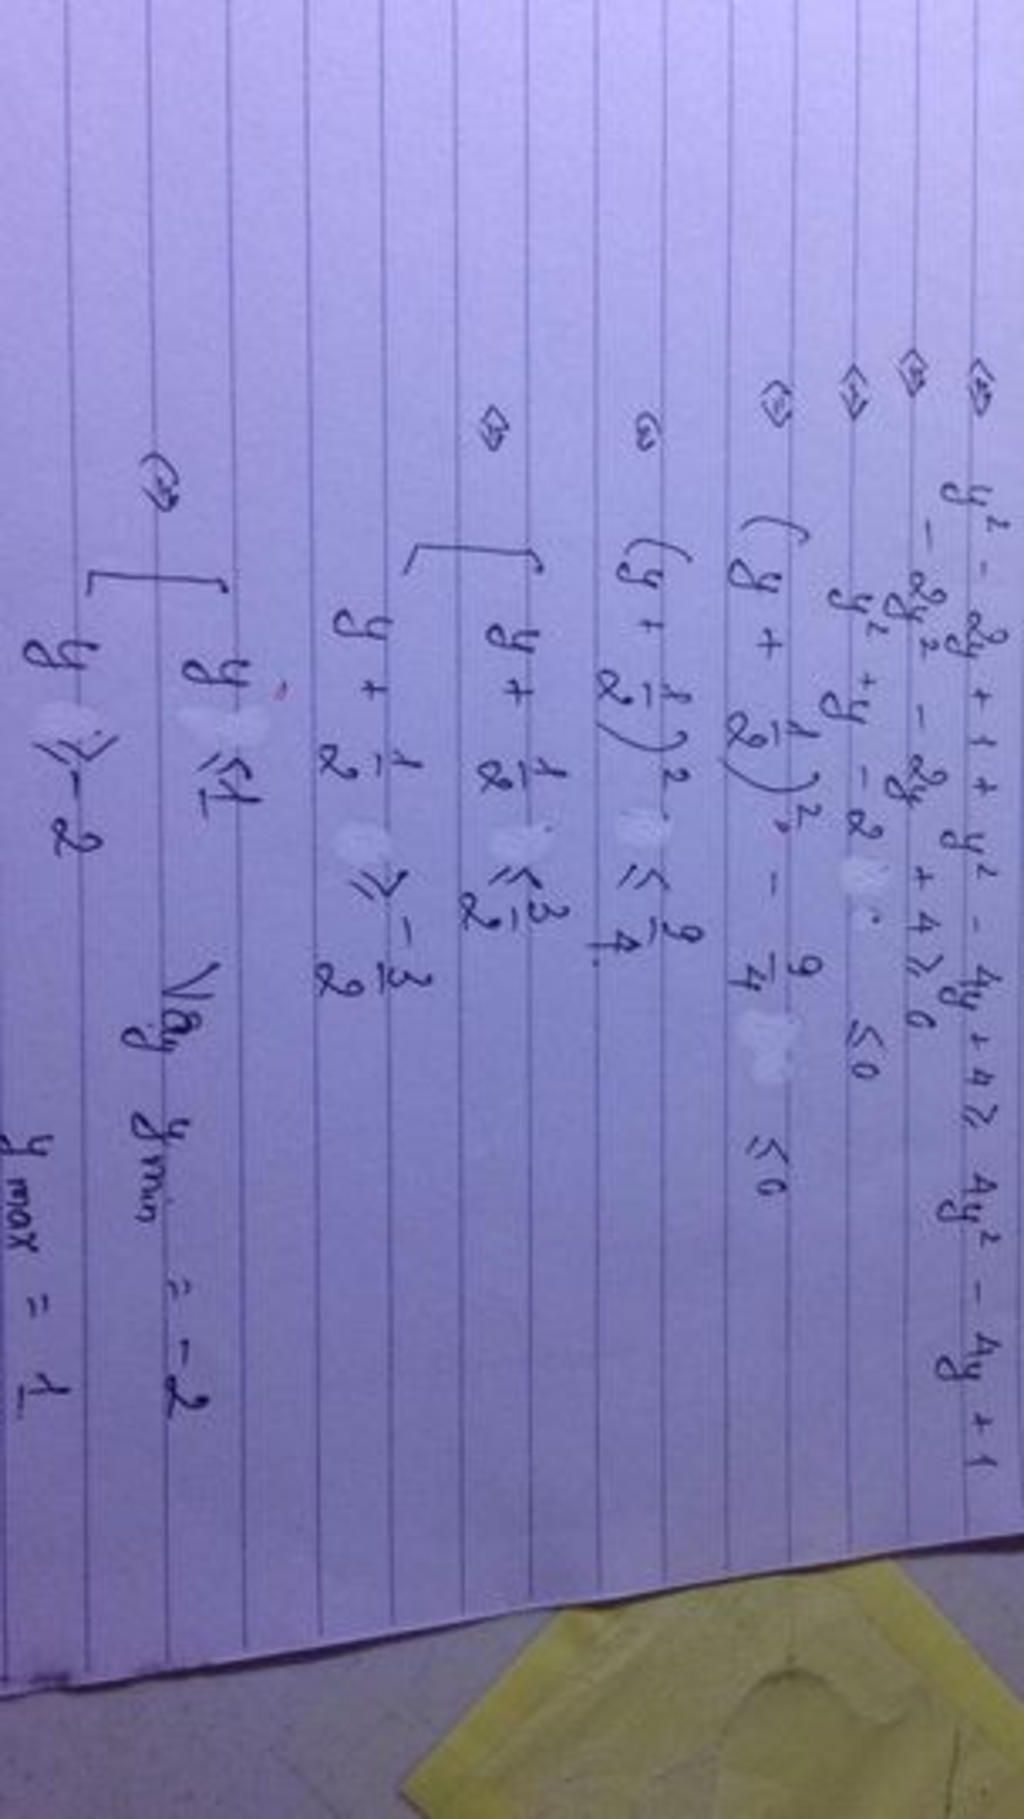 ⇔ y² - 2y + 1 + y² - 4y + 4 ≥ 4y² - 4y + 1
⇔ - 2y² - 2y + 4 ≥ 0
⇔ y² + y - 2 ≤ 0
⇔ (y + 1/2)² - 9/4 ≤ 0
⇔ (y + 1/2)² ≤ 9/4
⇔ [ y + 1/2 ≤ 3/2
y + 1/2 ≥ - 3/2
⇔ [ y ≤ 1
y ≥ - 2
Vậy y min = - 2
y max = 1